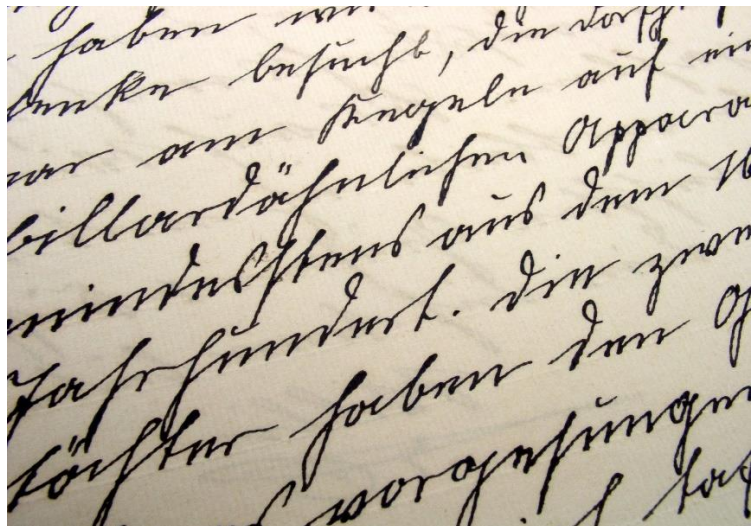 haben wi
denke besucht, die Dorfj
war am Kegeln auf ein
billardähnlichen Appara
mindesstens aus dem 16
Jahrhundert. Die zwei
töchter haben den G
vorgesungen
ich tat